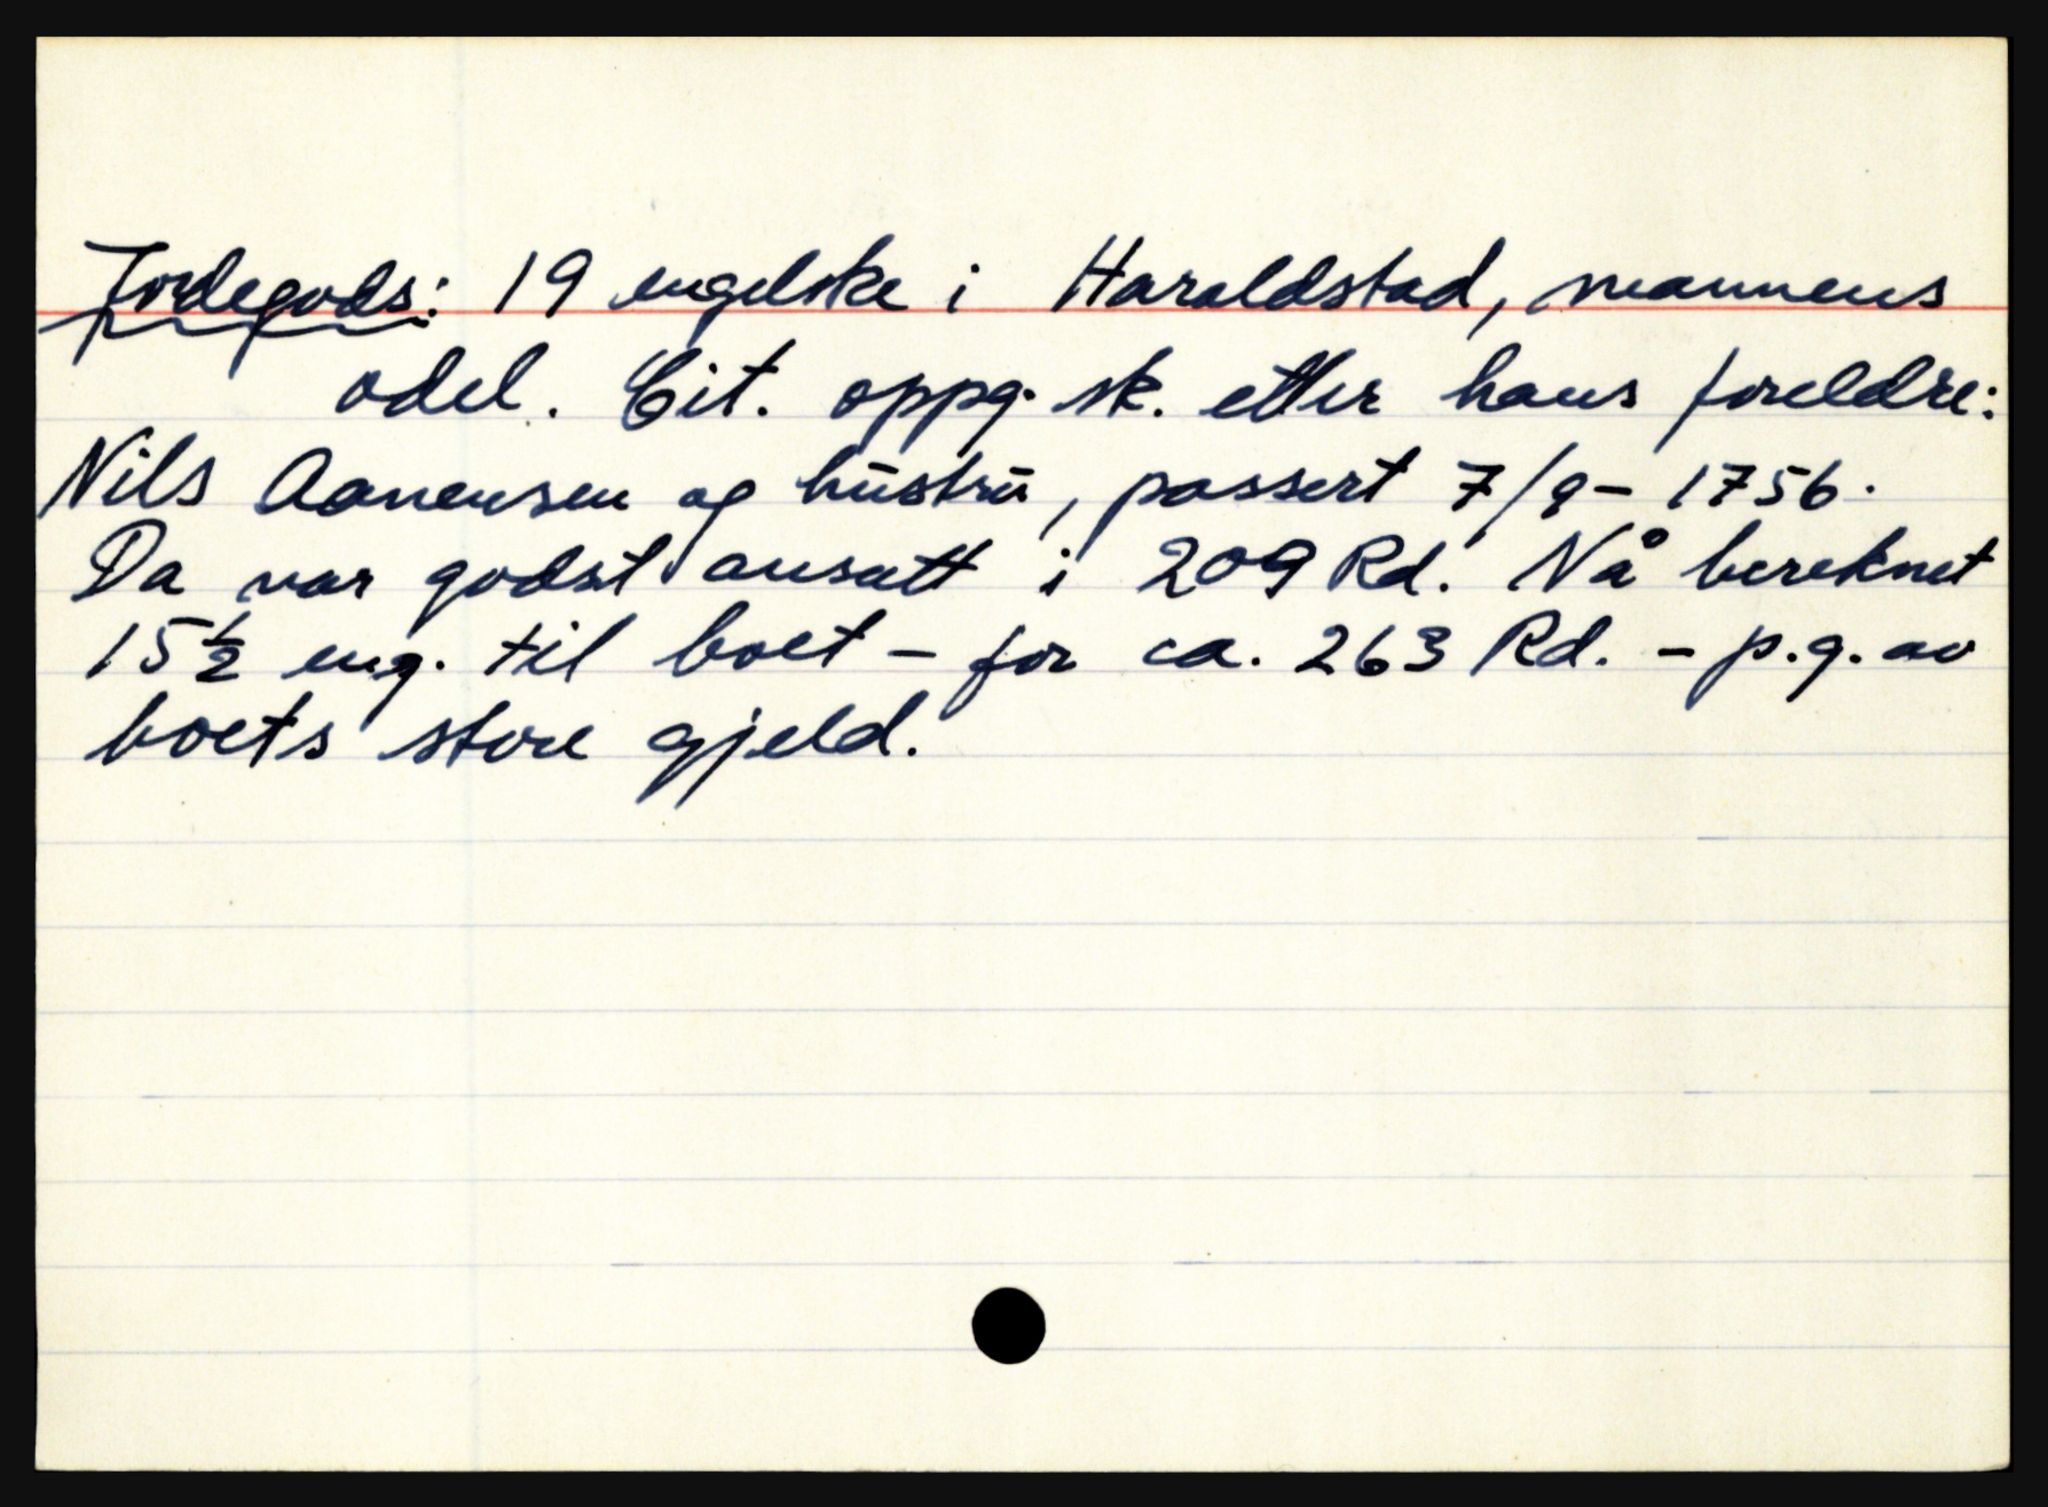 Jordegods: 19 engelske i Haraldstad, mannens
odel. Cit. oppg. sk. etter hans foreldre:
Nils Aanensen og hustru, passert 7/9 - 1756.
Da var godset ansatt i 209 Rd. Nå bereknet
15 1/2 eng. til boet - for ca. 263 Rd. - p.g. av
boets store gjeld.